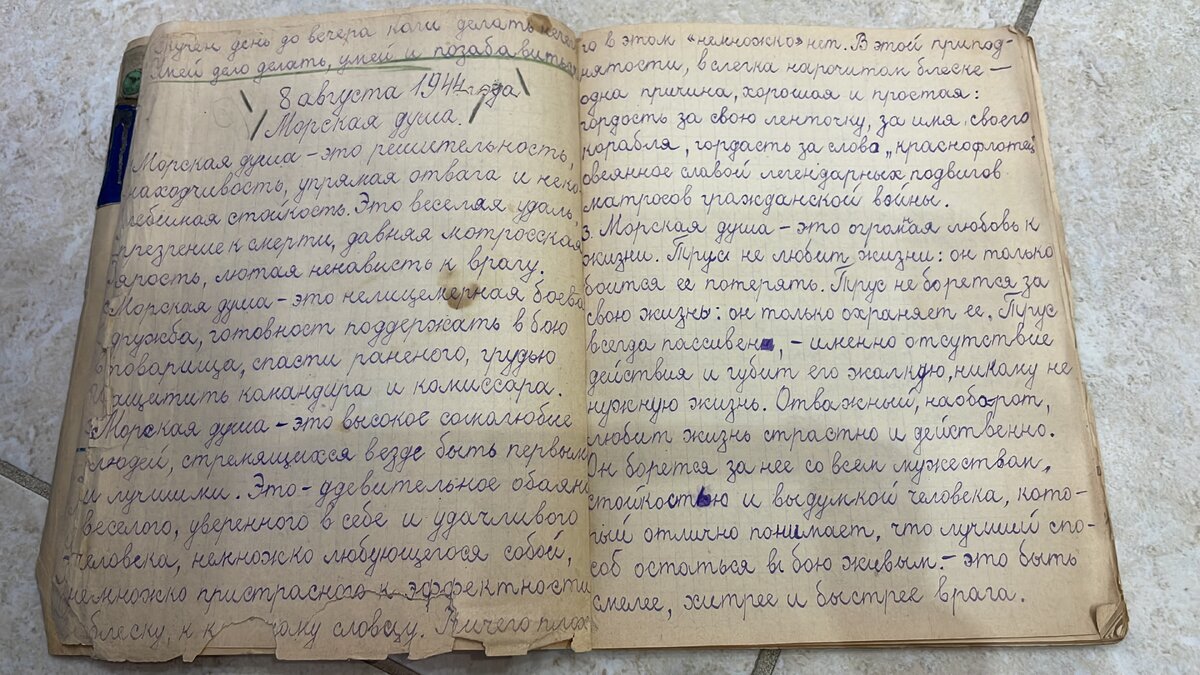 Скучен день до вечера коли делать нечего
Умей дело делать, умей и позабавиться
8 августа 1944 года
Морская душа.
Морская душа – это решительность,
находчивость, упрямая отвага и неко
лебимая стойкость. Это веселая удаль,
презрение к смерти, давняя мотросская
ярость, лютая ненависть к врагу.
Морская душа – это нелицемерная боева
дружба, готовност поддержать в бою
товарища, спасти раненого, грудью
защитить командира и комиссара.
Морская душа – это высокое самолюбие
людей, стремящихся везде быть первым
и лучшими. Это – удевительное обаяни
веселого, уверенного в себе и удачливого
человека, немножко любующегося собой,
немножко пристрасного к эффектности
блеску, к к ому словцу. Ничего плох
го в этом «немножко» нет. В этой припод-
нятости, в слегка нарочитом блеске –
одна причина, хорошая и простая:
гордость за свою ленточку, за имя своего
корабля, гордасть за слова „краснофлотец
овеянное славой легендарных подвигов
матросов гражданской войны.
3. Морская душа – это огромная любовь к
жизни. Трус не любит жизни: он только
боится ее потерять. Трус не борется за
свою жизнь: он только охраняет ее. Трус
всегда пассивен, – именно отсутствие
действия и губит его жалкую, никому не
нужную жизнь. Отважный, наоборот,
любит жизнь страстно и действенно.
Он борется за нее со всем мужеством,
стойкостью и выдумкой человека, кото-
рый отлично понимает, что лучший спо-
соб остаться в бою живым – это быть
смелее, хитрее и быстрее врага.